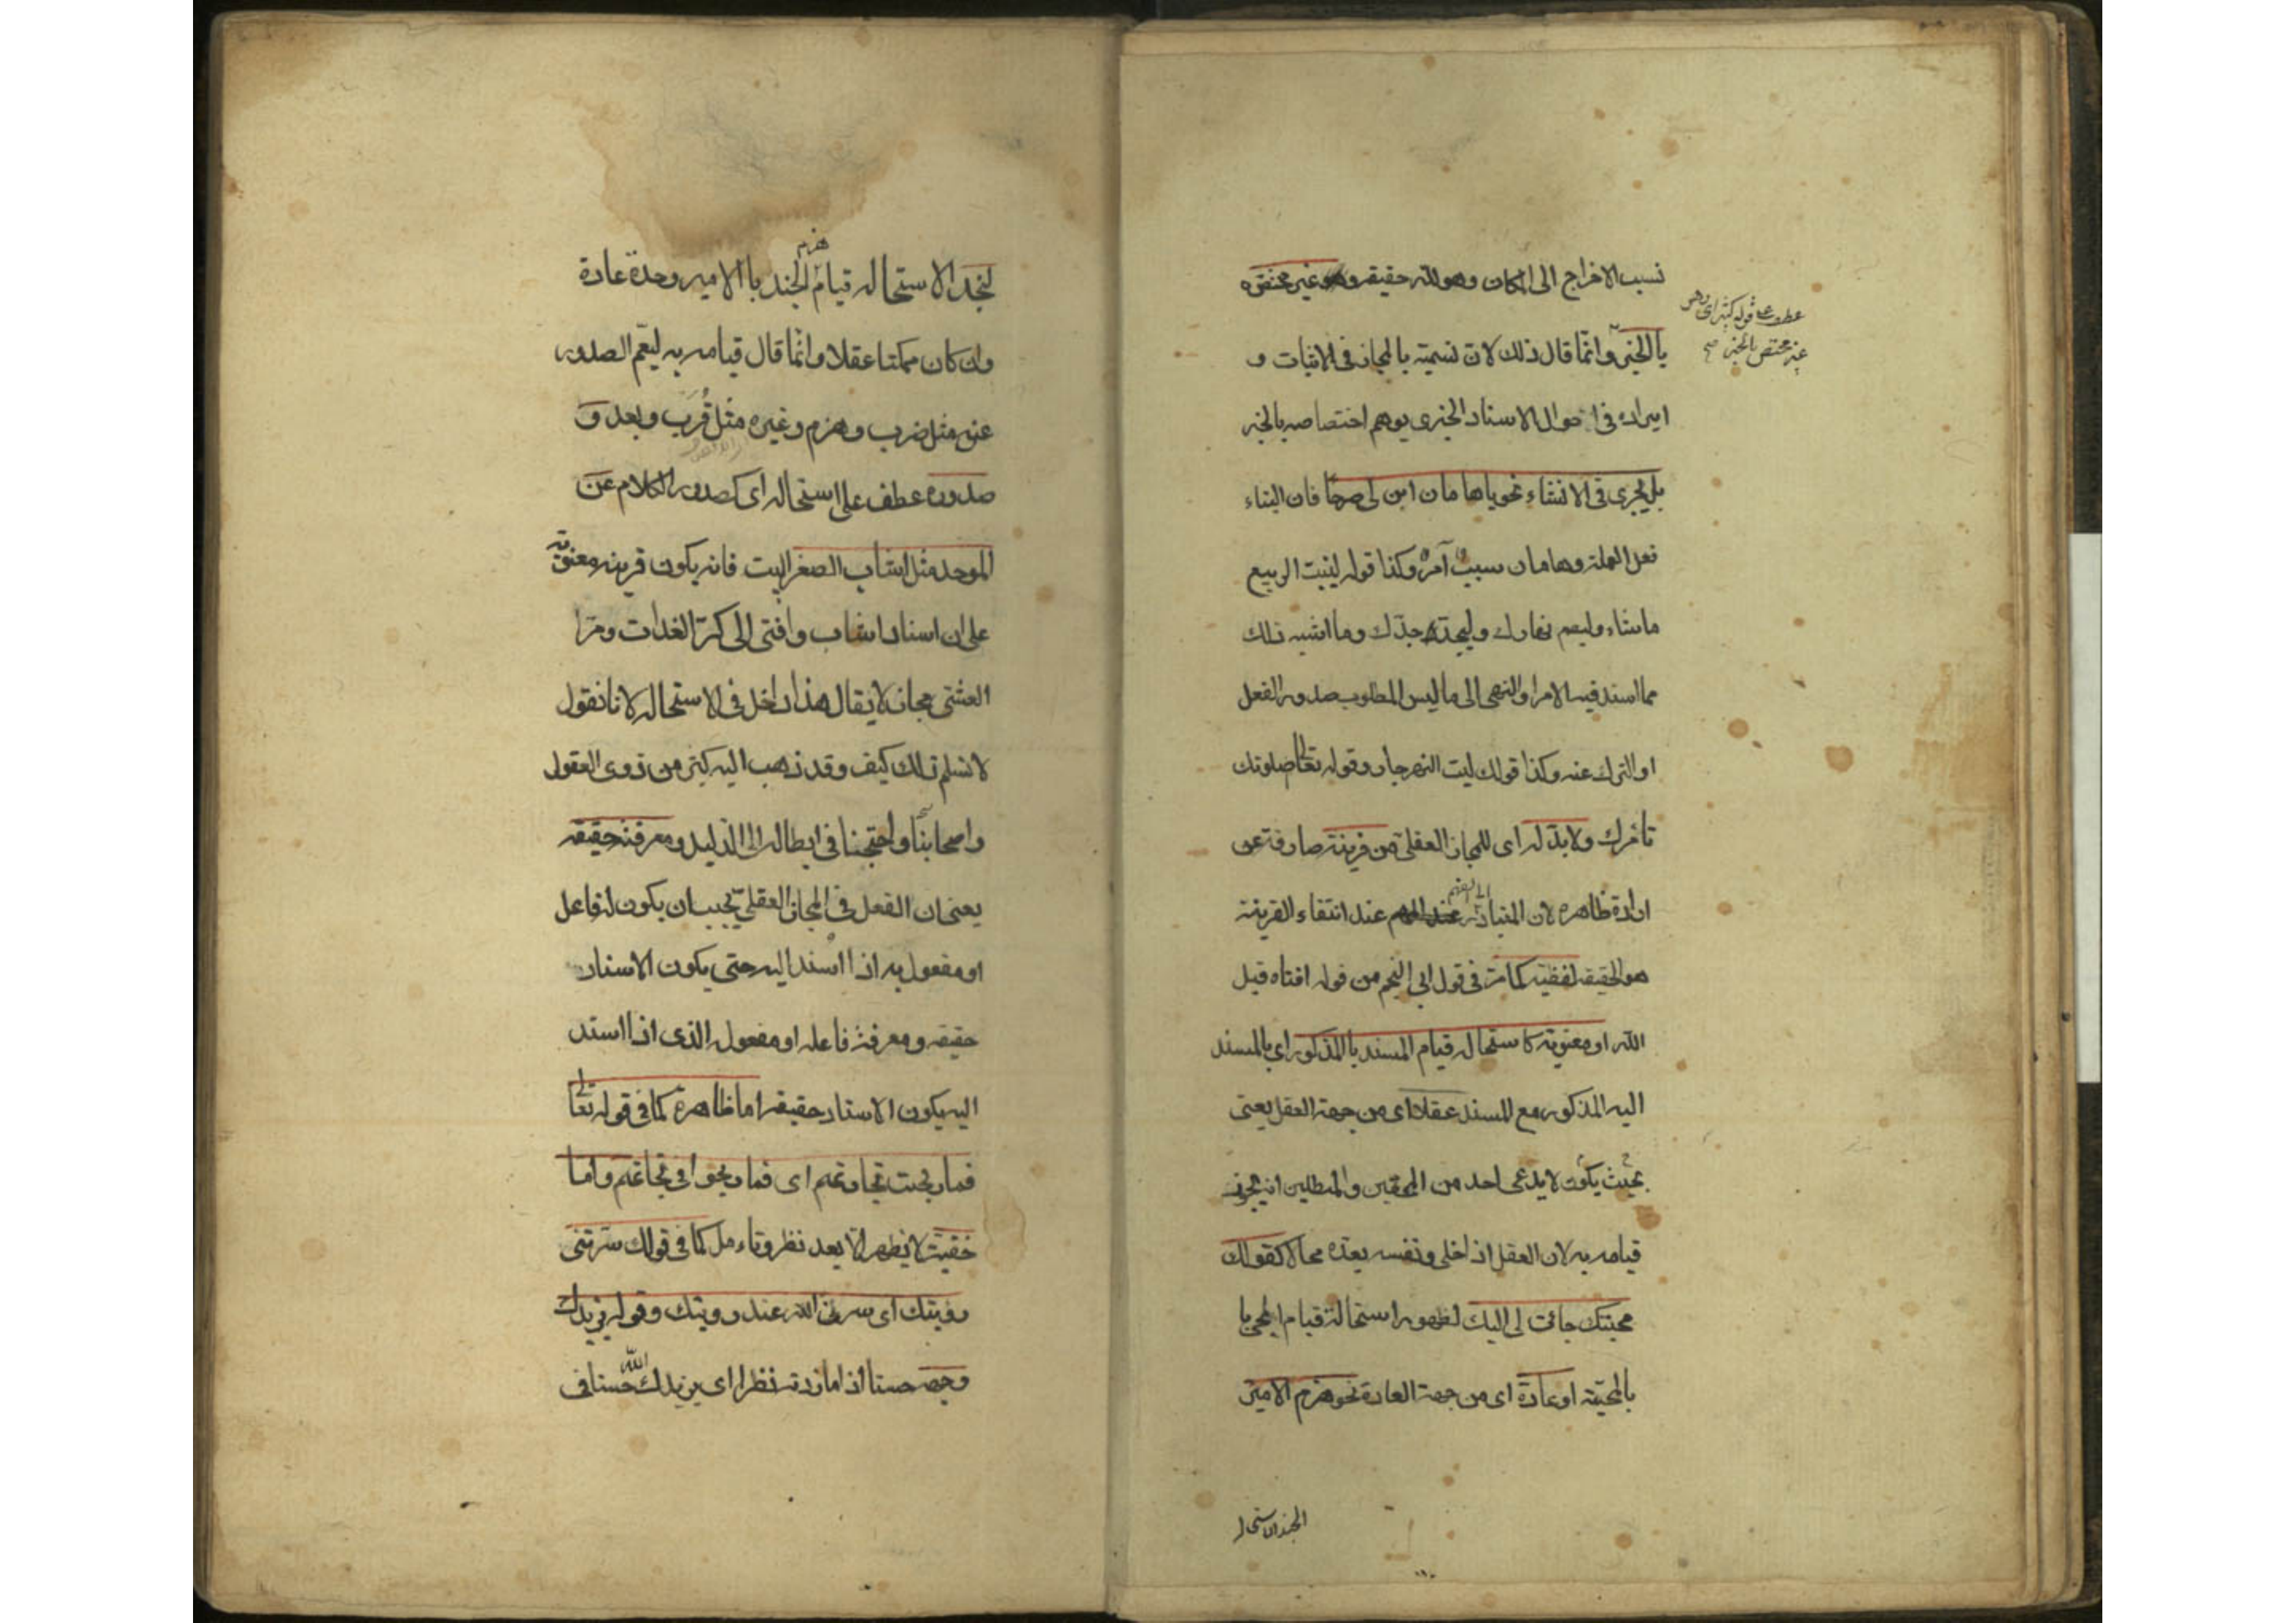 نسب الاخراج الى المكان وهو لله حقيقة وهو غير مختص
عطف على قوله كثير اى وهو
غير مختص بالخبر صح
بالخبر وانما قال ذلك لان تسميته بالمجاز فى الاثبات و
ايراده فى احوال الاسناد الخبرى يوهم اختصاصه بالخبر
بل يجرى فى الانشاء نحو ياهامان ابن لى صرحا فان البناء
فعل العملة وهامان سبب آمر وكذا قولك لينبت الربيع
ماشاء وليصم نهارك وليجد جدك وما اشبه ذلك
مما اسند فيه الامر او النهى الى ما ليس المطلوب صدور الفعل
او الترك عنه وكذا قولك ليت النهر جار وقوله تعالى اصلوتك
تأمرك ولابد له اى للمجاز العقلى من قرينة صارفة عن
ارادة ظاهره لان المتبادر الى الفهم عند انتفاء القرينة
هو الحقيقة لفظية كما مر فى قول ابى النجم من قوله افناه قيل
الله او معنوية كاستحالة قيام المسند بالمذكور اى بالمسند
اليه المذكور مع المسند عقلا اى من جهة العقل يعنى
بحيث يكون لا يدعى احد من المحقين والمبطلين انه يجوز
قيامه به لان العقل اذا خلى ونفسه يعده محالا كقولك
محبتك جائت لى اليك لظهور استحالة قيام المجئ با
بالمحبة او عادة اى من جهة العادة نحو هزم الامير
الجند لاستحالة
لجند الاستحالة قيام هزم الجند باالامير وحدة عادة
وان كان ممكنا عقلا وانما قال قيامه به ليعم الصدور
عنه مثل ضرب وهزم وغيره مثل قرب وبعد و
صدوره عطف على استحالة اى كصدور الكلام عن
الموحد مثل اشاب الصغير البيت فانه يكون قرينة معنوية
على ان اسناد اشاب وافنى الى كر الغداة ومر
العشى مجاز لا يقال هذا داخل فى الاستحالة لانا نقول
لا نسلم ذلك كيف وقد ذهب اليه كثير من ذوى العقول
واصحابنا واحتجنا فى ابطاله الى الدليل ومعرفة حقيقته
يعنى ان الفعل فى المجاز العقلى يجب ان يكون له فاعل
او مفعول به اذا اسند اليه حتى يكون الاسناد
حقيقه ومعرفة فاعله او مفعوله الذى اذا اسند
اليه يكون الاسناد حقيقة اما ظاهرة كما فى قوله تعالى
فما ربحت تجارتهم اى فما ربحوا فى تجارتهم واما
خفية لا يظهر الا بعد نظر وتاءمل كما فى قولك سرتنى
رؤيتك اى سرنى الله عند رويتك وقوله يزيدك
وجهه حسنا اذا ما زدته نظرا اى يزيدك الله حسنا فى